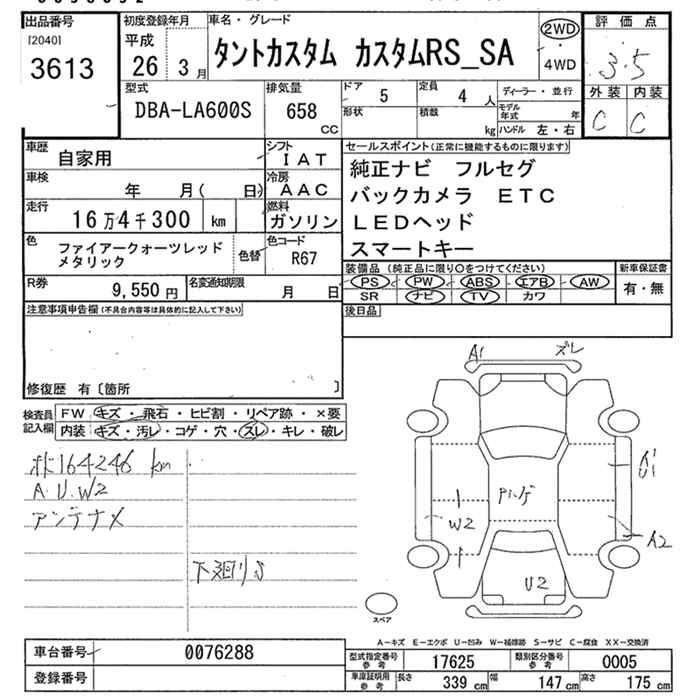 出品番号
[2040]
3613
初度登録年月
平成
26 3月
車名・グレード
タントカスタム カスタムRS_SA
2WD
・
4WD
評価点
3.5
外装 内装
C C
型式
DBA-LA600S
排気量
658
cc
ドア 5
形状
定員 4 人
積載 kg
ディーラー・並行
モデル年式 年
ハンドル 左・右
車歴
自家用
シフト
IAT
車検
年 月( 日)
冷房
AAC
走行
16万4千300 km
燃料
ガソリン
色
ファイアークォーツレッド
メタリック
色替
色コード
R67
R券
9,550円
名変通知期限
月 日
セールスポイント(正常に機能するものに限ります)
純正ナビ フルセグ
バックカメラ ETC
LEDヘッド
スマートキー
装備品(純正品に限り○をつけてください)
PS PW ABS エアB AW
SR ナビ TV カワ
新車保証書
有・無
後日品
注意事項申告欄(不具合内容等は具体的に記入して下さい)
修復歴 有〔箇所 〕
検査員
記入欄
FW キズ・飛石・ヒビ割・リペア跡・×要
内装 キズ・汚レ・コゲ・穴・スレ・キレ・破レ
164246 km
A.U.W2
アンテナメ
下廻りS
A1 ズレ
A1
U1
W2
A2
U2
スペア
A-キズ E-エクボ U-凹み W-補修跡 S-サビ C-腐食 XX-交換済
車台番号 0076288
登録番号
型式指定番号
参考
17625
類別区分番号
参考
0005
車庫証明用
参考
長さ 339 cm 幅 147 cm 高さ 175 cm